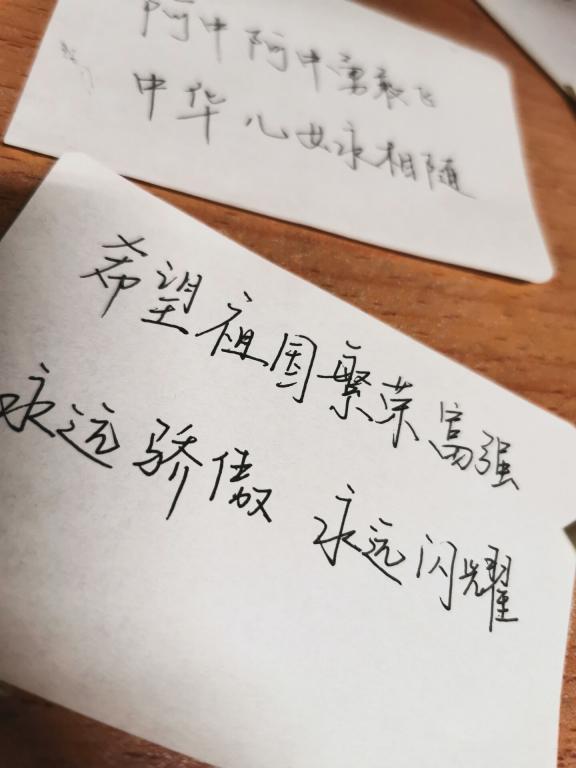 阿中阿中勇敢飞
中华儿女永相随
希望祖国繁荣富强
永远骄傲 永远闪耀